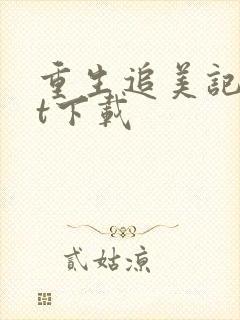 重生追美記
t下載
貳姑涼